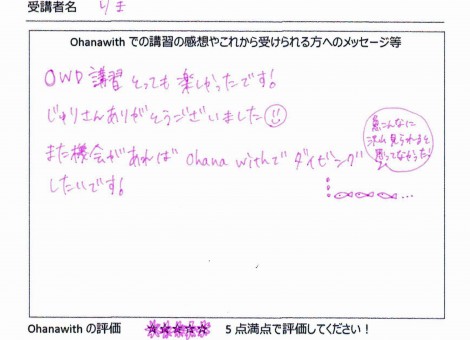 受講者名 りま
Ohanawith での講習の感想やこれから受けられる方へのメッセージ等
OWD 講習とっても楽しかったです!
じゅりさんありがとうございました
また機会があれば Ohana withで ダイビング
したいです!
魚こんなに
沢山 見られると
思ってなかった!
Ohanawith の評価 ☆☆☆☆☆ 5 点満点で評価してください!